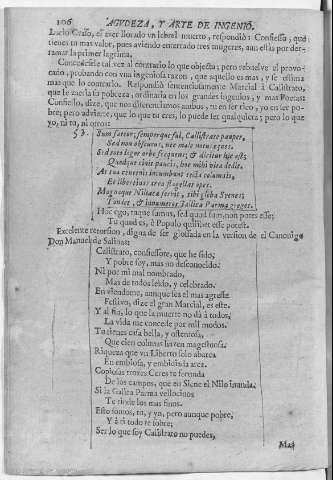 106 AGVDEZA, Y ARTE DE INGENIO.
Lucio Craso, el aver llorado vn lobral muerto, respondiò: Confiessa, que
tienes tu mas valor, pues aviendo enterrado tres mugeres, aun estàs por der-
ramar la primer lagrima.
Concedesele tal vez al contrario lo que objecta; pero rebuelve el provo-
cado, probando con vna ingeniosa razon, que aquello es mas, y se estima
mas que lo contrario. Respondiò sentenciosamente Marcial à Calistrato,
que le zaeria la pobreza, ordinaria en los grandes ingenios, y mas Poetas:
Confiesso, dize, que nos diferenciamos ambos; tu en ser rico, yo en ser po-
bre; pero advierte, que lo que tu eres, lo puede ser qualquiera; pero lo que
yo, ni tu, ni otros:
53. Sum fateor, semperque fui, Callistrate pauper,
Sed non obscurus, nec male notus eques.
Sed toto legor orbe frequens; & dicitur hic est;
Quodque cinis paucis, hoc mihi vita dedit.
At tua centenis incumbunt tecta columnis,
Et libertinas arca flagellat opes.
Magnaque Niliacæ servit, tibi gleba Syenes;
Tondet, & innumeros Gallica Parma greges.
Hoc ego, tuque sumus, sed quod sum, non potes esse;
Tu quod es, è Populo quilibet esse potest.
Excelente retorsion, digna de ser glossada en la version de el Canonigo
Don Manuel de Salinas:
Calistrato, confiessote, que he sido,
Y pobre soy, mas no desconocido.
Ni por mi mal nombrado,
Mas de todos leido, y celebrado.
En viendome, aunque sea el mas agreste.
Festivo, dize el gran Marcial, es este.
Y al fin, lo que la muerte no dà à todos,
La vida me concede por mil modos.
Tu tienes casa bella, y ostentosa,
Que cien colunas hazen magestuosa.
Riquezas que vn Liberto solo abarca
En embolsa, y embolsa la arca.
Copiosas troxes Ceres te fecunda
De los campos, que en Siene el Nilo inunda.
Si la Galica Parma vellocinos
Te rinde los mas finos.
Esto somos, tu, y yo, pero aunque pobre,
Y à ti todo te sobre;
Ser lo que soy Calistrato no puedes,
Mas